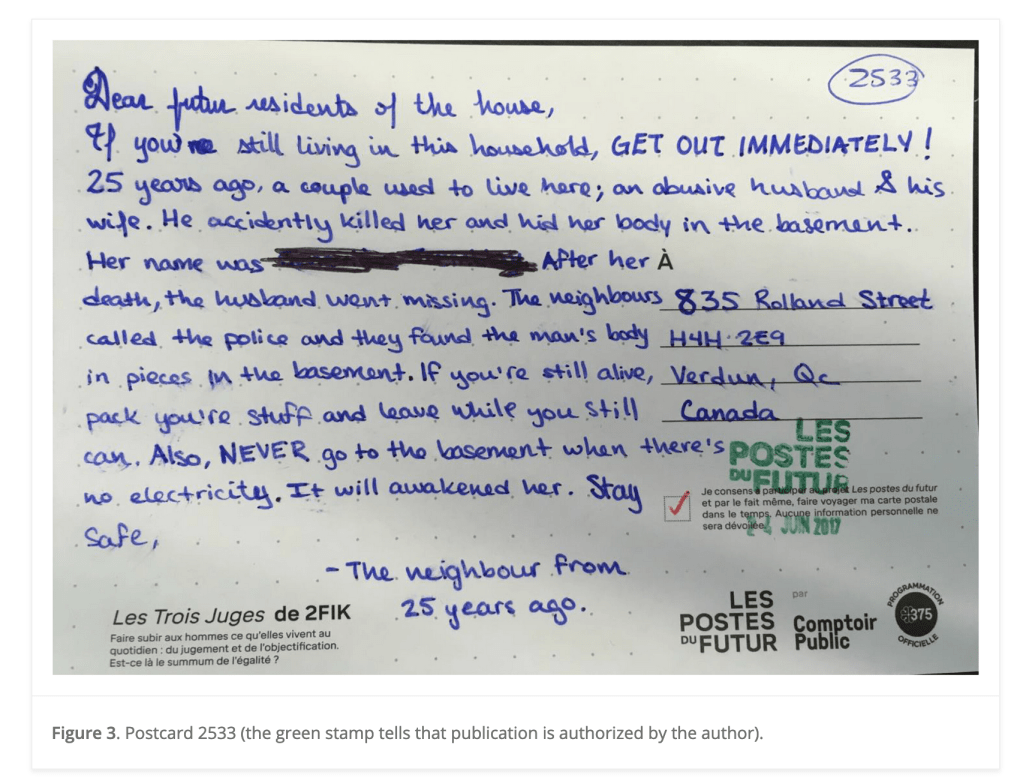 2533
Dear futur residents of the house,
If you're still living in this household, GET OUT IMMEDIATELY !
25 years ago, a couple used to live here; an abusive husband & his
wife. He accidently killed her and hid her body in the basement.
Her name was After her
death, the husband went missing. The neighbours
called the police and they found the man's body
in pieces in the basement. If you're still alive,
pack you're stuff and leave while you still
can. Also, NEVER go to the basement when there's
no electricity. It will awakened her. Stay
safe,
- The neighbour from
25 years ago.
À
835 Rolland Street
H4H 2E9
Verdun, Qc
Canada
LES
POSTES
DU FUTUR
Je consens à participer au projet Les postes du futur
et par le fait même, faire voyager ma carte postale
dans le temps. Aucune information personnelle ne
sera dévoilée.
JUIN 2017
Les Trois Juges de 2FIK
Faire subir aux hommes ce qu'elles vivent au
quotidien : du jugement et de l'objectification.
Est-ce là le summum de l'égalité ?
LES
POSTES
DU FUTUR
par
Comptoir
Public
PROGRAMMATION
375
OFFICIELLE
Figure 3. Postcard 2533 (the green stamp tells that publication is authorized by the author).